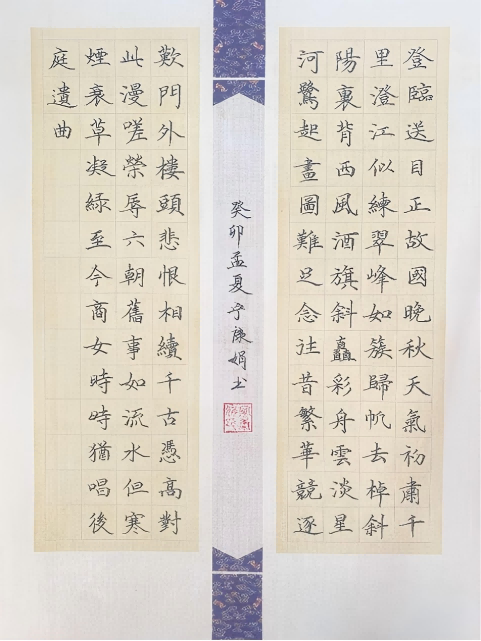 登臨送目正故國晚秋天氣初肅千
里澄江似練翠峰如簇歸帆去棹斜
陽裏背西風酒旗斜矗彩舟雲淡星
河鷺起畫圖難足念往昔繁華競逐
歎門外樓頭悲恨相續千古憑高對
此漫嗟榮辱六朝舊事如流水但寒
煙衰草凝綠至今商女時時猶唱後
庭遺曲
癸卯孟夏娟书